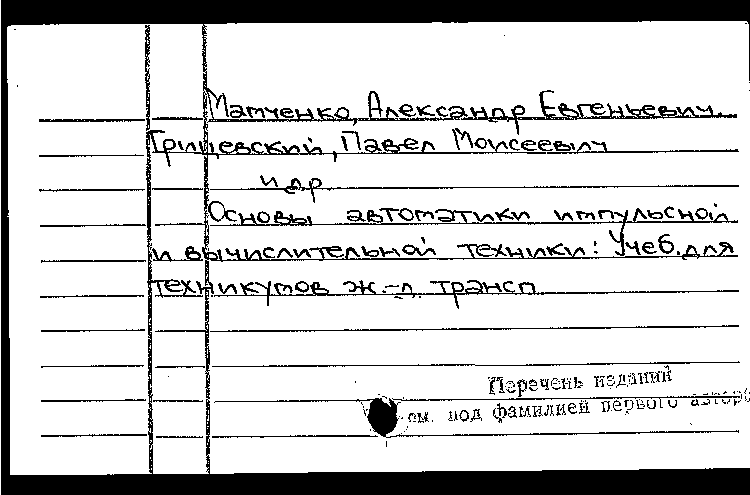 Матченко, Александр Евгеньевич.
Грицевский, Павел Моисеевич
и др
Основы автоматики импульсной
и вычислительной техники: Учеб. для
техникумов ж.-д. трансп
Перечень изданий
см. под фамилией первого автора